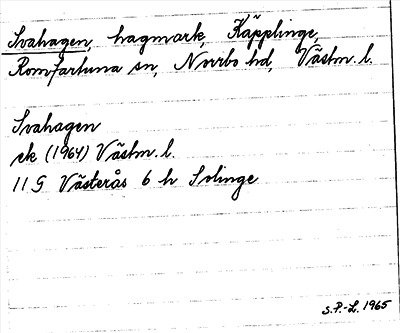 Svahagen, hagmark, Käpplinge,
Romfartuna sn, Norrbo hd, Västm. l.
Svahagen
ek (1964) Västm. l.
11 G Västerås 6 h Solinge
S.P.-L. 1965